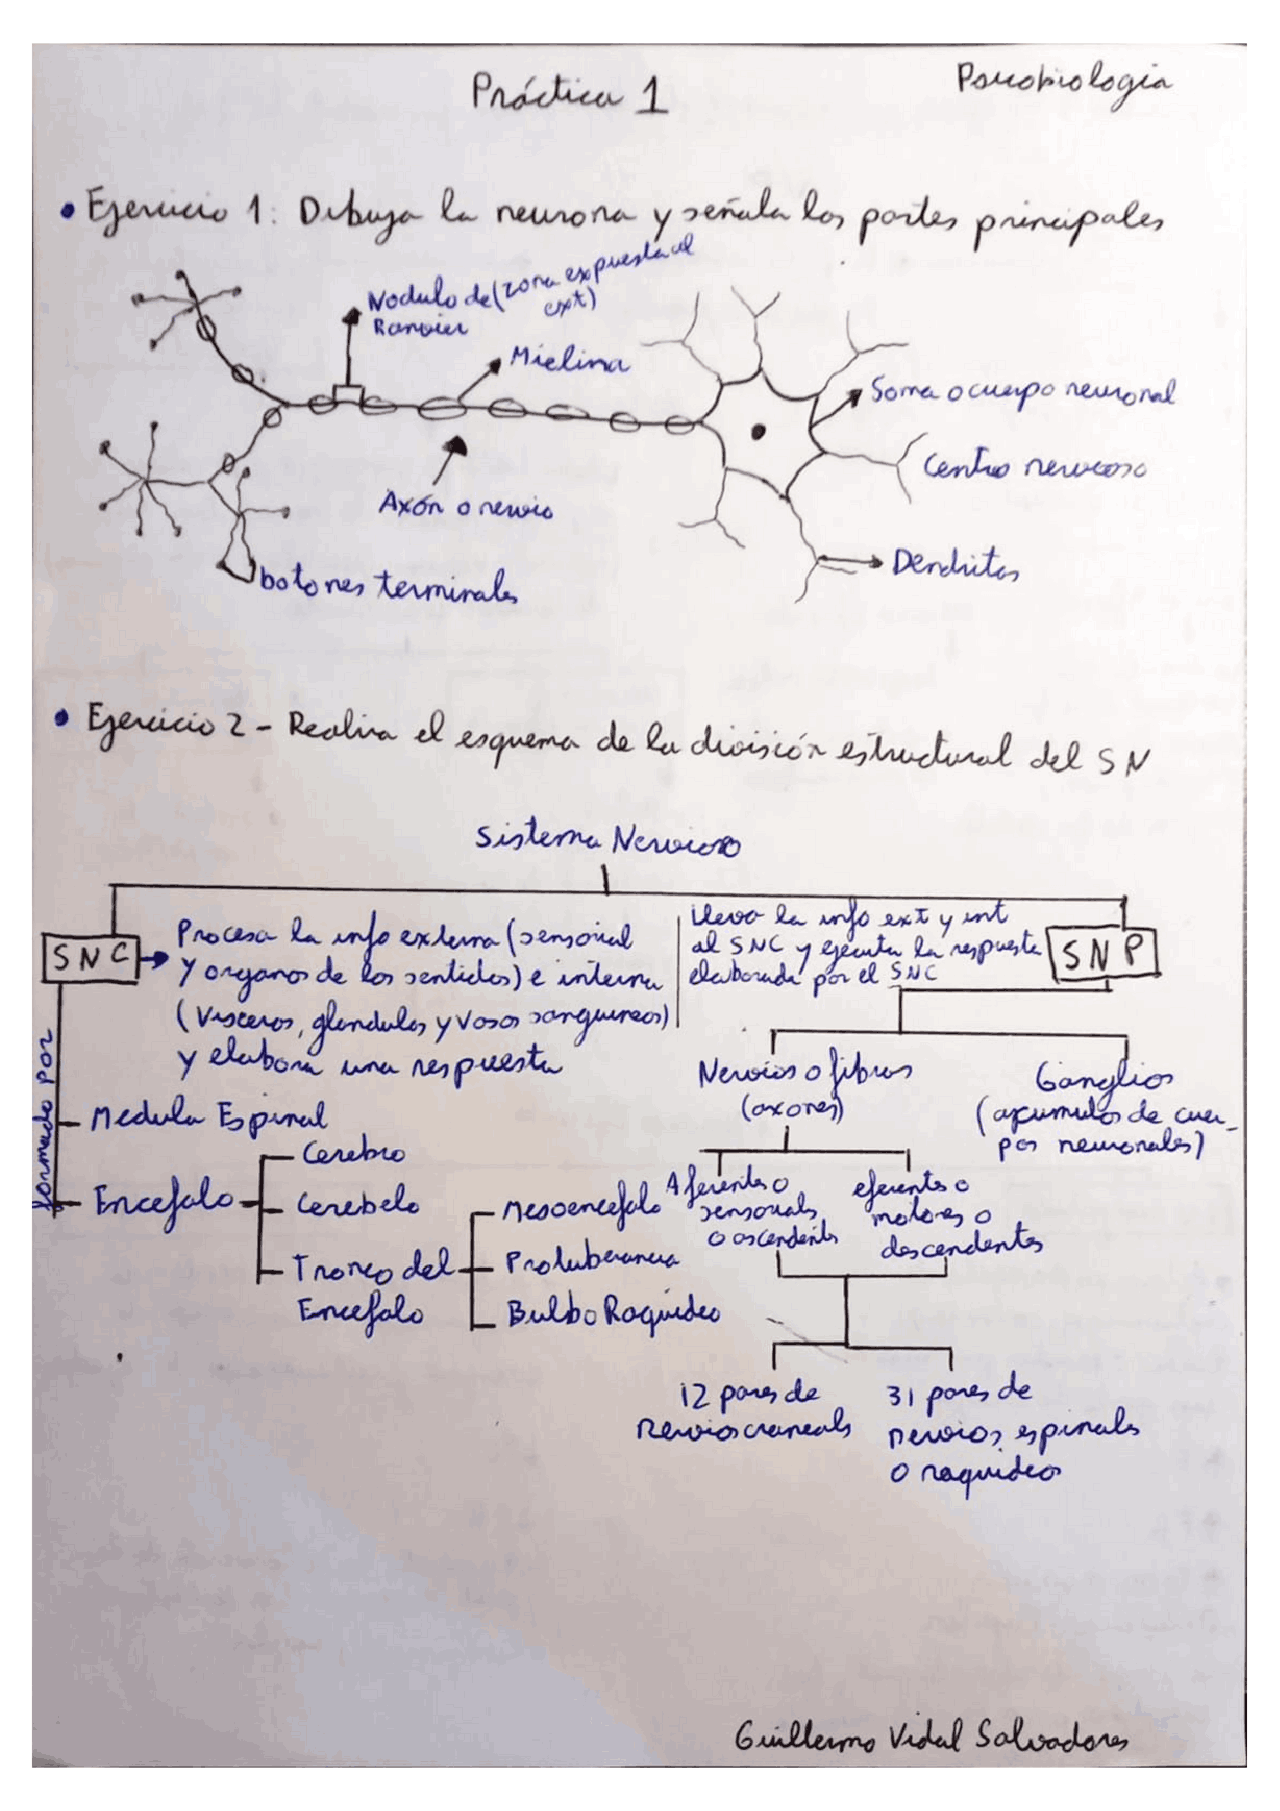 Práctica 1
Psicobiología
• Ejercicio 1: Dibuja la neurona y señala las partes principales
Nodulo de (zona expuesta al
Ranvier ext)
Mielina
Soma o cuerpo neuronal
Centro nervioso
Axón o nervio
Dendritas
botones terminales
• Ejercicio 2 - Realiza el esquema de la división estructural del SN
Sistema Nervioso
SNC
Procesa la info externa (sensorial
y organos de los sentidos) e interna
(visceras, glandulas y vasos sanguineos)
y elabora una respuesta
lleva la info ext y int
al SNC y ejecuta la respuesta
elaborada por el SNC
SNP
formado por
Medula Espinal
Encefalo
Cerebro
Cerebelo
Tronco del
Encefalo
Mesoencefalo
Protuberancia
Bulbo Raquideo
Nervios o fibras
(axones)
Ganglios
(acumulos de cuer-
pos neuronales)
Aferentes o
sensoriales
o ascendentes
eferentes o
motores o
descendentes
12 pares de
nervios craneales
31 pares de
nervios espinales
o raquideos
Guillermo Vidal Salvadores